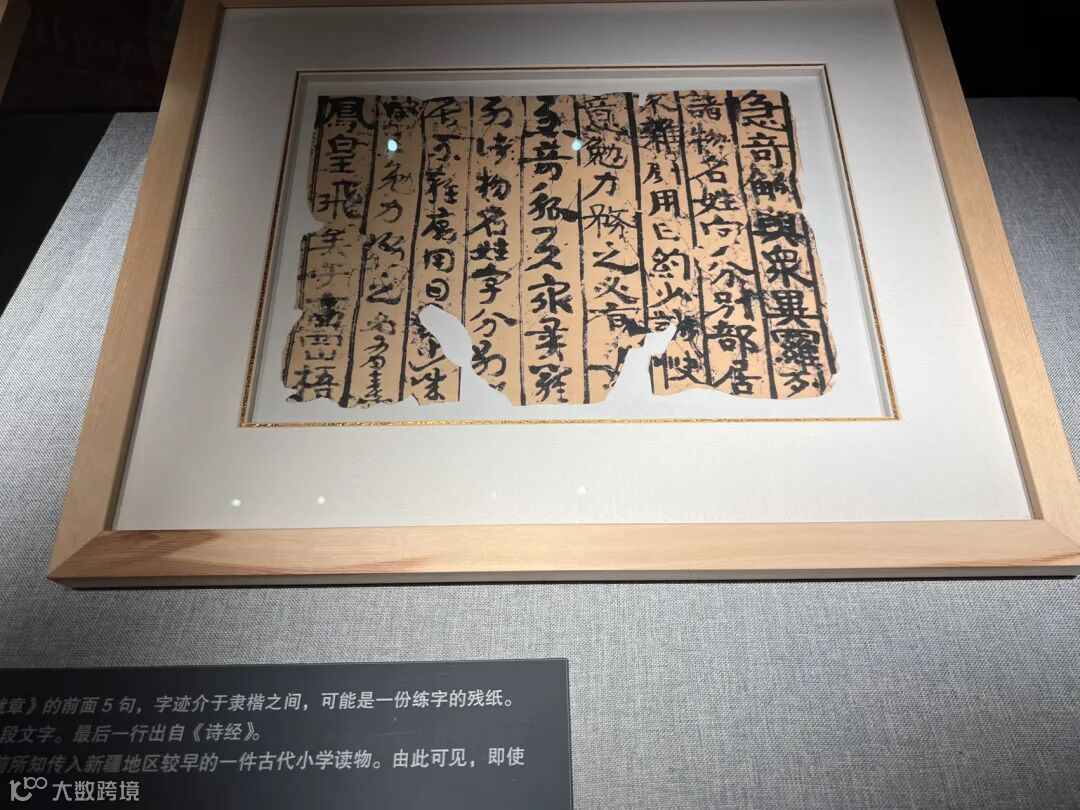 急奇觚與衆異羅列
諸物名姓字分別部居
不雜厠用日約少誠快
意勉力務之必有
急奇觚與衆異羅
列諸物名姓字分別
居不雜廁用日約少誠
勉力務之必有憙
鳳皇飛矣于高梧
就章》的前面 5 句，字迹介于隶楷之间，可能是一份练字的残纸。
段文字。最后一行出自《诗经》。
前所知传入新疆地区较早的一件古代小学读物。由此可见，即使
大数跨境